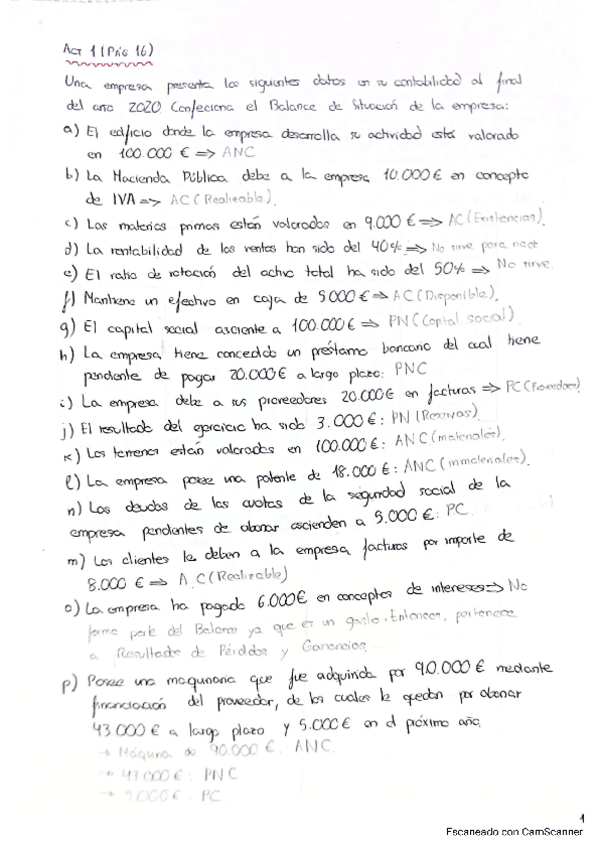 Act 1 (Pág 16)
Una empresa presenta los siguientes datos en su contabilidad al final
del año 2020. Confecciona el Balance de Situación de la empresa:
a) El edificio donde la empresa desarrolla su actividad está valorado
en 100.000 € => ANC
b) La Hacienda Pública debe a la empresa 10.000 € en concepto
de IVA => AC (Realizable).
c) Las materias primas están valorados en 9.000 € => AC (Existencias).
d) La rentabilidad de las ventas han sido del 40% => No sirve para
e) El ratio de rotación del activo total ha sido del 50% => No sirve.
f) Mantiene un efectivo en caja de 5000 € => AC (Disponible).
g) El capital social asciente a 100.000 € => PN (Capital social).
h) La empresa tiene concedido un préstamo bancario del cual tiene
pendiente de pagar 20.000 € a largo plazo: PNC
i) La empresa debe a sus proveedores 20.000 € en facturas => PC (Proveedores)
j) El resultado del ejercicio ha sido 3.000 €: PN (Reservas)
k) Los terrenos están valorados en 100.000 €: ANC (materiales).
l) La empresa posee una patente de 18.000 €: ANC (inmateriales).
n) Las deudas de las cuotas de la seguridad social de la
empresa pendientes de abonar ascienden a 5.000 €: PC.
m) Los clientes le deben a la empresa facturas por importe de
8.000 € => A.C (Realizable)
o) La empresa ha pagado 6.000 € en conceptos de intereses => No
forma parte del Balance ya que es un gasto. Entonces, pertenece
a Resultado de Pérdidas y Ganancias
p) Posee una maquinaria que fue adquirida por 90.000 € mediante
financiación del proveedor, de los cuales le quedan por abonar
43.000 € a largo plazo y 5.000 € en el próximo año.
→ Máquina de 90.000 €. ANC.
→ 43.000 €: PNC
→ 5.000 €. PC.
1
Escaneado con CamScanner